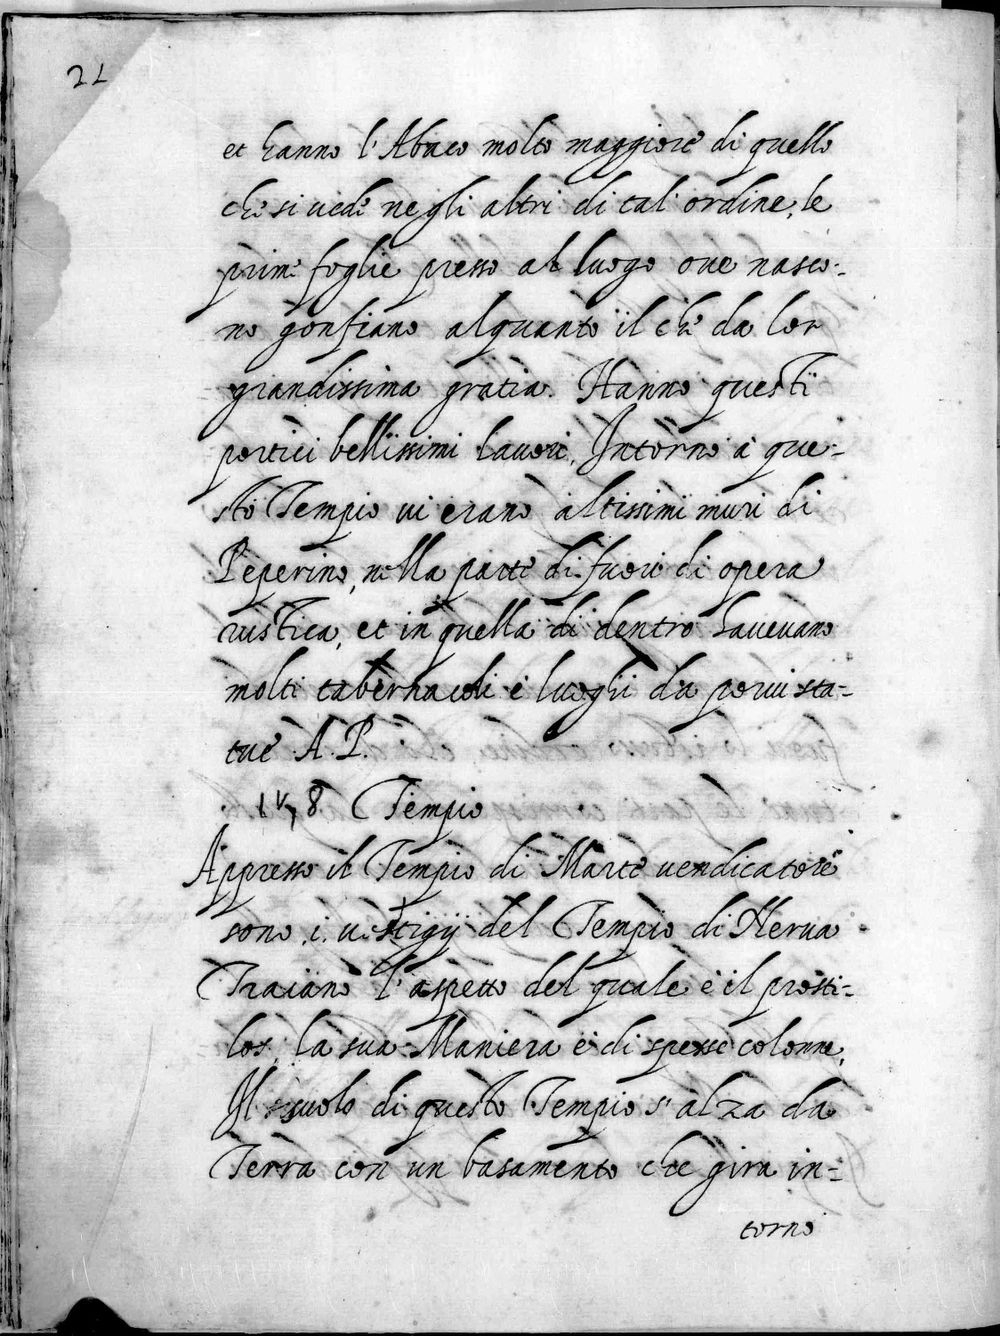 21
et hanno l'Abaco molto maggiore di quello
che si uede negli altri di tal' ordine, le
prime foglie presso al luogo oue nasco-
no gonfiano alquanto il che da lor
grandissima gratia. Hanno questi
portici bellissimi lauori, Intorno à que-
sto Tempio ui erano altissimi muri di
Peperino, nella parte di fuori di opera
rustica, et in quella di dentro haueuano
molti tabernacoli e luoghi da porui sta-
tue A. P.
Tempio
Appresso il Tempio di Marte uendicatore
sono i uestigij del Tempio di Nerua
Traiano l'aspetto del quale è il prosti-
los, la sua Maniera è di spesse colonne,
Il suolo di questo Tempio s'alza da
Terra con un basamento che gira in-
torno